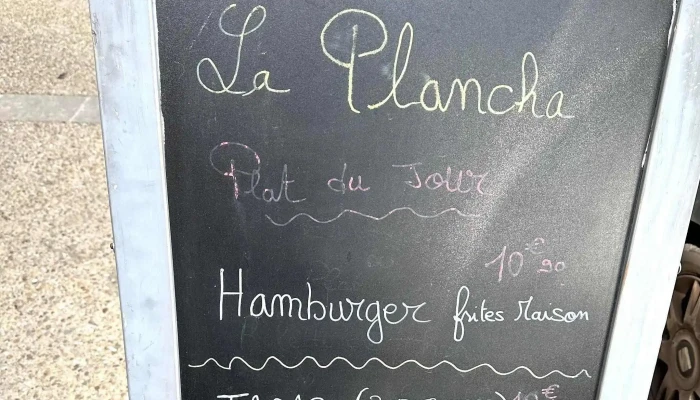 La Plancha
Plat du Jour
10€90
Hamburger frites Maison